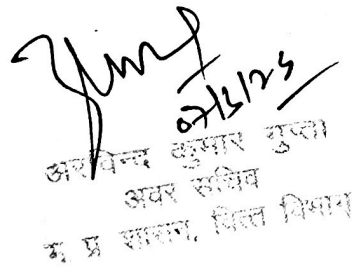 07/3/23
अरविन्द कुमार गुप्ता
अवर सचिव
म. प्र. शासन, वित्त विभाग